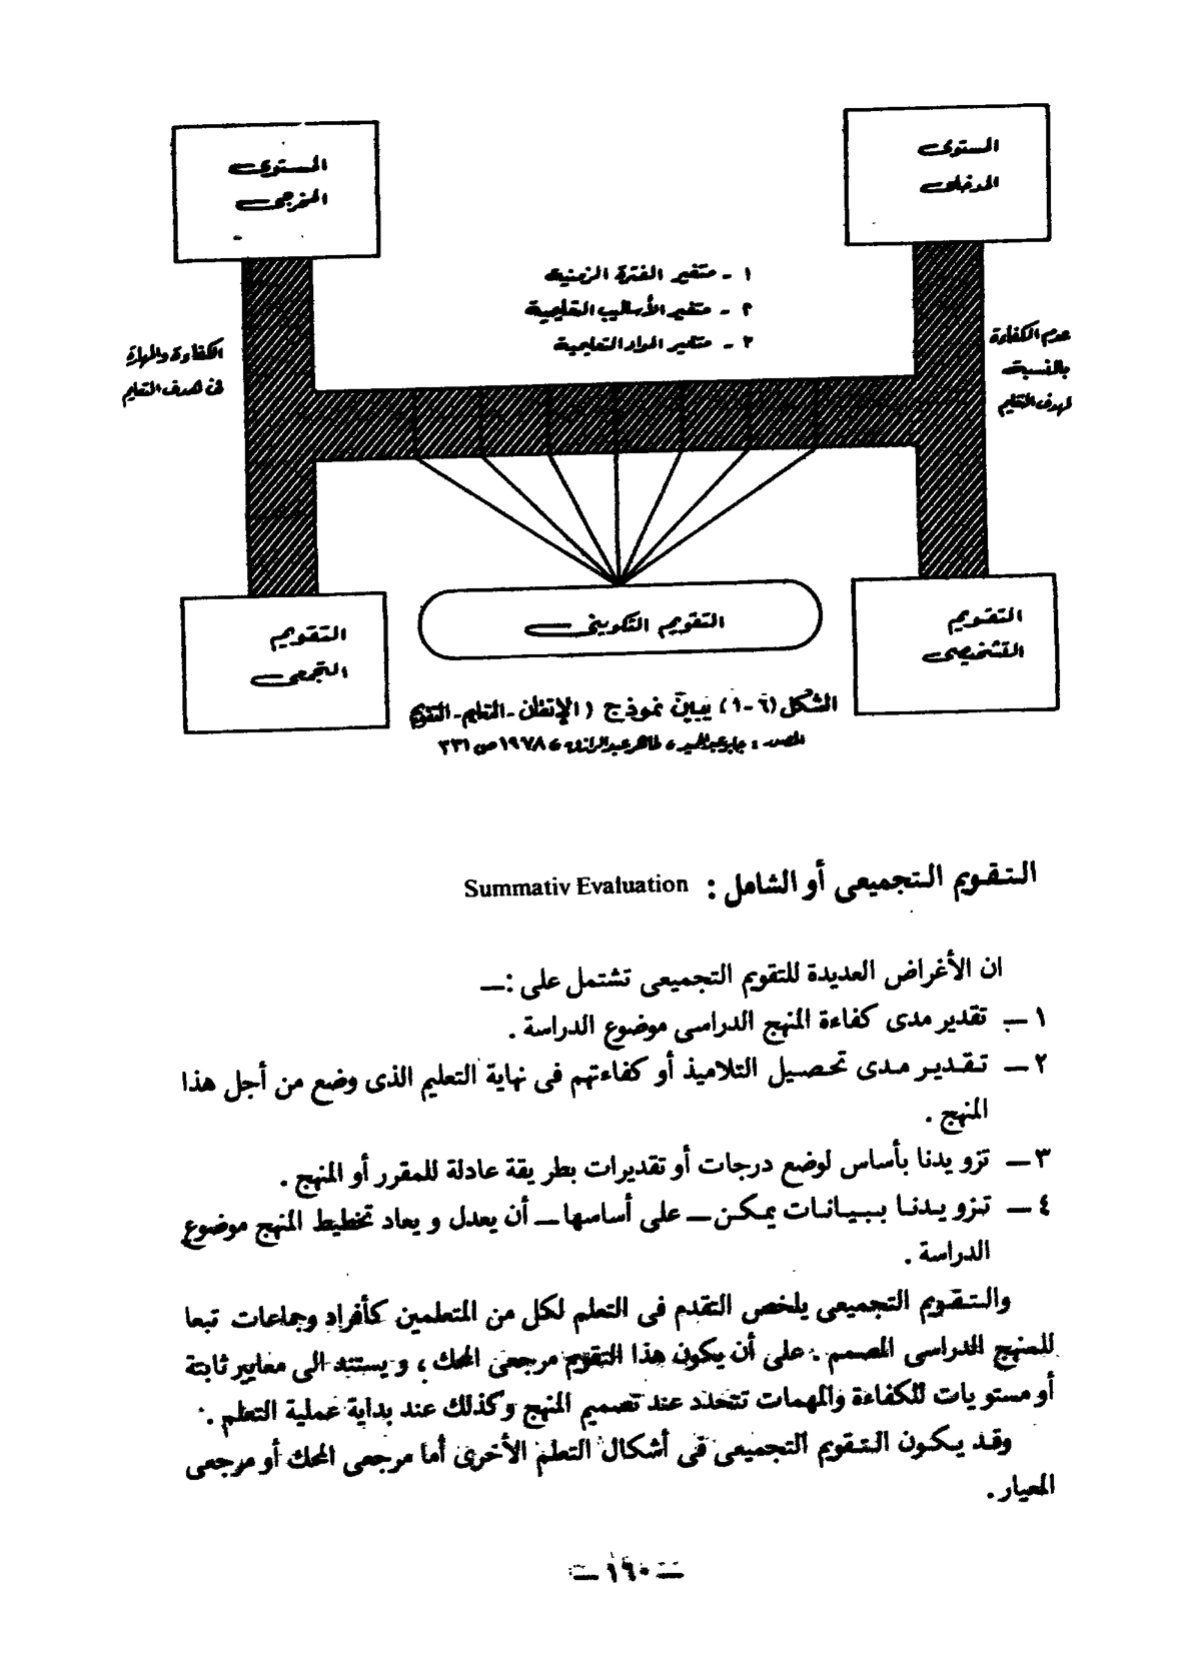 المستوى
المدخلى
المستوى
المخرجى
١ - متغير الفترة الزمنية
٢ - متغير الأساليب التعليمية
٣ - متغير المواد التعليمية
عدم الكفاءة
بالنسبة
لهدف التعليم
الكفاءة والمهارة
فى هدف التعليم
التقويم
التشخيصى
التقويم التكوينى
التقويم
التجمعى
الشكل (٦-٩) يبين نموذج (الإتقان - التعليم - التقويم
المصدر : جابر عبد الحميد ، طاهر عبد الرازق ، ١٩٧٨ ص ٣٣١
التقويم التجميعى أو الشامل : Summativ Evaluation
ان الأغراض العديدة للتقويم التجميعى تشتمل على :ــ
١ ــ تقدير مدى كفاءة المنهج الدراسى موضوع الدراسة .
٢ ــ تقدير مدى تحصيل التلاميذ أو كفاءتهم فى نهاية التعليم الذى وضع من أجل هذا
المنهج .
٣ ــ تزويدنا بأساس لوضع درجات أو تقديرات بطريقة عادلة للمقرر أو المنهج .
٤ ــ تزويدنا ببيانات يمكن ــ على أساسها ــ أن يعدل ويعاد تخطيط المنهج موضوع
الدراسة .
والتقويم التجميعى يلخص التقدم فى التعلم لكل من المتعلمين كأفراد وجماعات تبعا
للمنهج الدراسى المصمم . على أن يكون هذا التقويم مرجعى المحك ، ويستند الى معايير ثابتة
أو مستويات للكفاءة والمهمات تتحدد عند تصميم المنهج وكذلك عند بداية عملية التعلم .
وقد يكون التقويم التجميعى فى أشكال التعلم الأخرى أما مرجعى المحك أو مرجعى
المعيار .
ــ ١٦٠ ــ